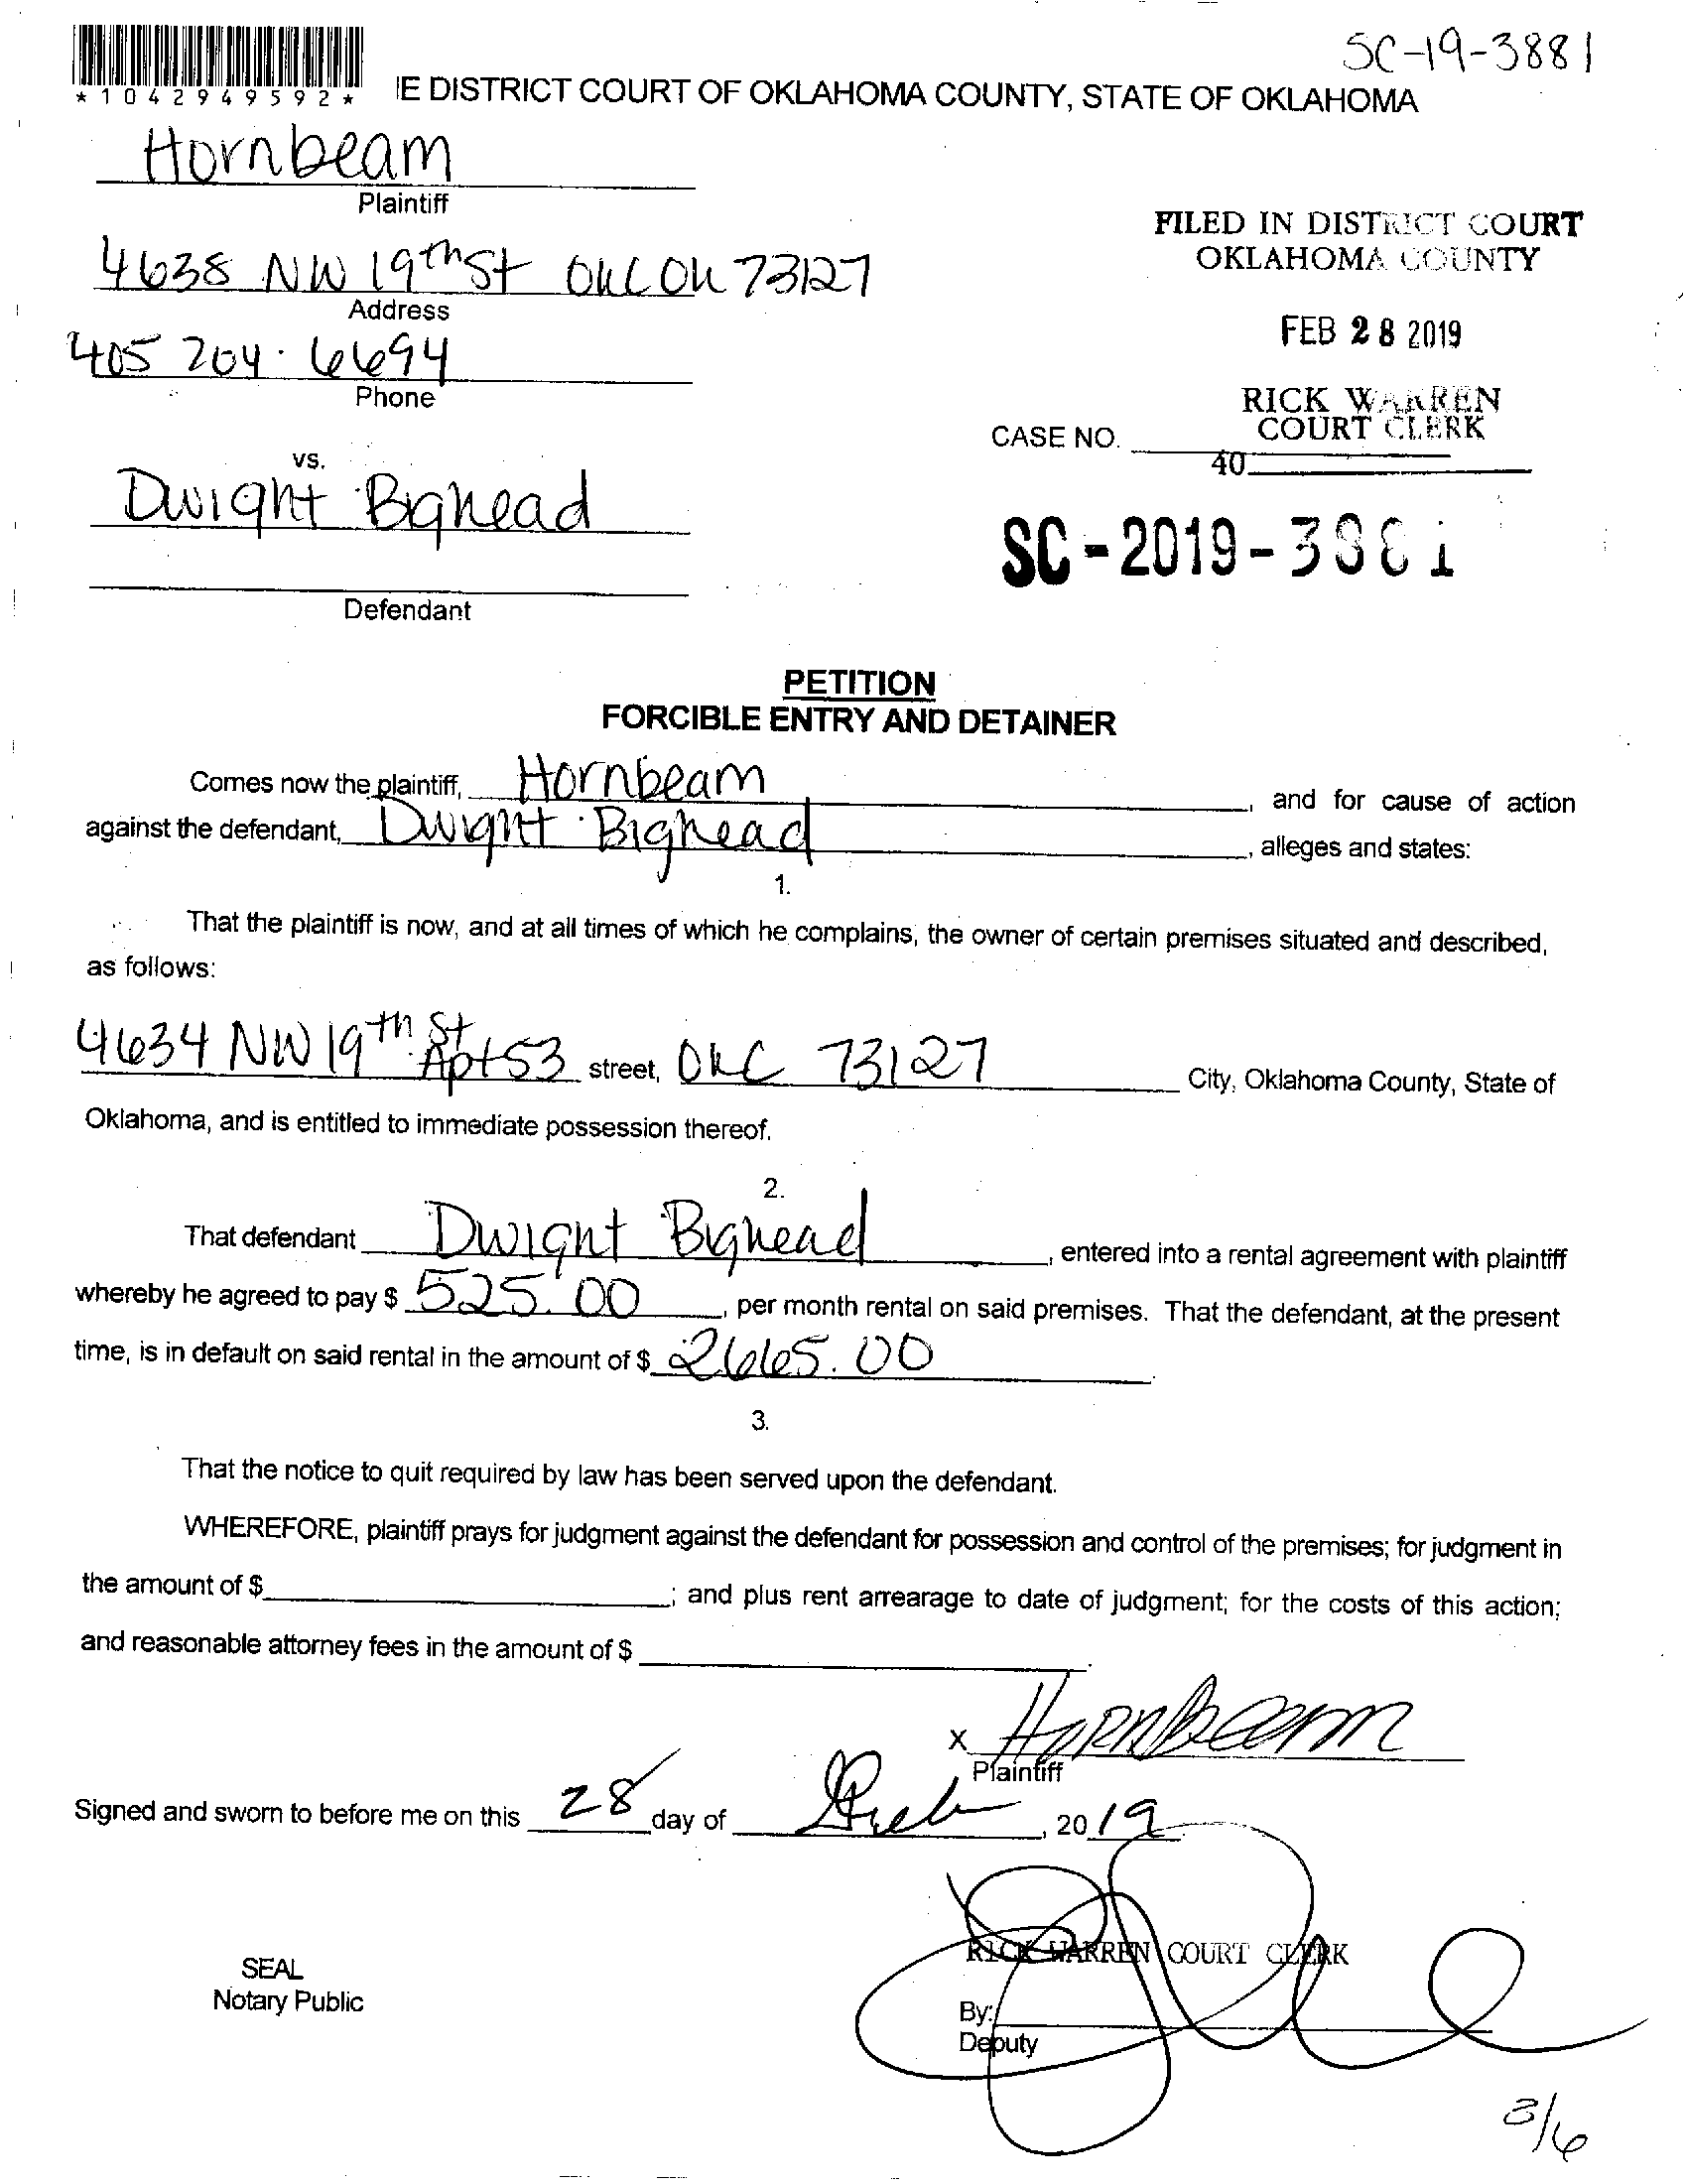 SC-19-3881
*1042949592*
IE DISTRICT COURT OF OKLAHOMA COUNTY, STATE OF OKLAHOMA
Hornbeam
Plaintiff
4638 NW 19th St OKC OK 73127
Address
405 204. 6694
Phone
FILED IN DISTRICT COURT
OKLAHOMA COUNTY
FEB 28 2019
RICK WARREN
COURT CLERK
CASE NO.
40
vs.
Dwight Bighead
SC-2019-3881
Defendant
PETITION
FORCIBLE ENTRY AND DETAINER
Comes now the plaintiff, Hornbeam, and for cause of action
against the defendant, Dwight Bighead, alleges and states:
1.
That the plaintiff is now, and at all times of which he complains, the owner of certain premises situated and described,
as follows:
4634 NW 19th St Apt 53 street, OKC 73127 City, Oklahoma County, State of
Oklahoma, and is entitled to immediate possession thereof.
2.
That defendant Dwight Bighead, entered into a rental agreement with plaintiff
whereby he agreed to pay $ 525.00, per month rental on said premises. That the defendant, at the present
time, is in default on said rental in the amount of $ 2665.00.
3.
That the notice to quit required by law has been served upon the defendant.
WHEREFORE, plaintiff prays for judgment against the defendant for possession and control of the premises; for judgment in
the amount of $ ; and plus rent arrearage to date of judgment; for the costs of this action;
and reasonable attorney fees in the amount of $ .
x Hornbeam
Plaintiff
Signed and sworn to before me on this 28 day of Feb, 2019
RICK WARREN COURT CLERK
SEAL
Notary Public
By:
Deputy
3/6